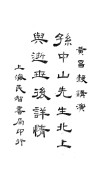 黃昌穀講演
孫中山先生北上
與逝世後詳情
上海民智書局印行